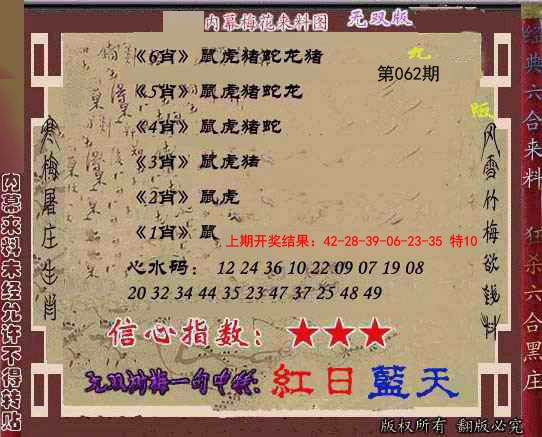 内幕梅花来料图 无双版
九
第062期
版
《6肖》 鼠虎猪蛇龙猪
《5肖》 鼠虎猪蛇龙
《4肖》 鼠虎猪蛇
《3肖》 鼠虎猪
《2肖》 鼠虎
《1肖》 鼠
上期开奖结果：42-28-39-06-23-35 特10
心水码： 12 24 36 10 22 09 07 19 08
20 32 34 44 35 23 47 37 25 48 49
信心指数：★★★
无双 梅一句中特：紅日藍天
寒梅屠庄生肖
风雪竹梅欲钱料
内幕来料未经允许不得转贴
经典六合来料
狂杀六合黑庄
版权所有 翻版必究